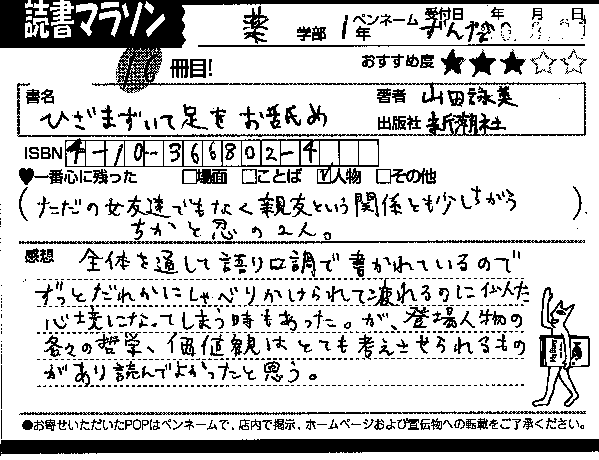 読書マラソン
薬 学部 1年 ペンネーム ずんだ 受付日 年 月 日
冊目!
おすすめ度 ★★★☆☆
書名 ひざまずいて足をお舐め
著者 山田詠美
出版社 新潮社
ISBN 4-10-366802-4
♥一番心に残った □場面 □ことば ☑人物 □その他
(ただの女友達でもなく親友という関係とも少しちがう
ちかと忍の2人。)
感想 全体を通して語り口調で書かれているので
ずっとだれかにしゃべりかけられて疲れるのに似た
心境になってしまう時もあった。が、登場人物の
各々の哲学、価値観はとても考えさせられるもの
があり読んでよかったと思う。
●お寄せいただいたPOPはペンネームで、店内で掲示、ホームページおよび宣伝物への転載をご了承ください。